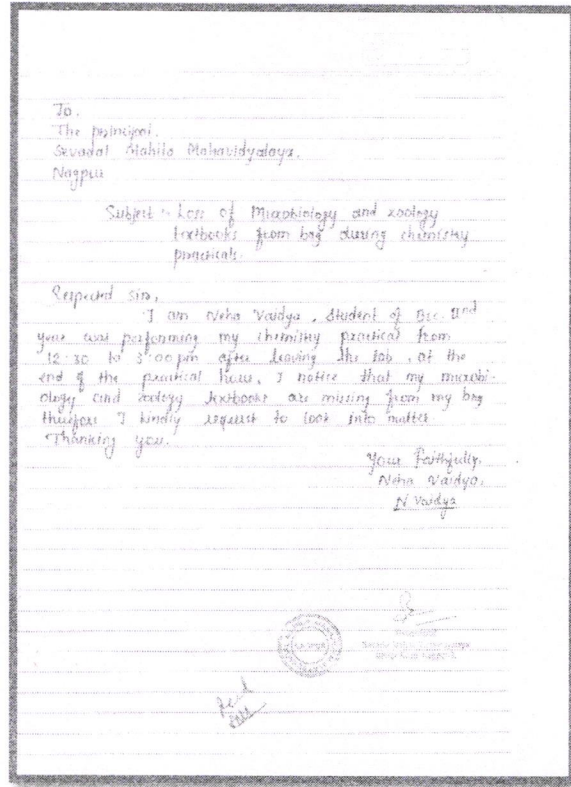 To,
The principal,
Sevadal Mahila Mahavidyalaya,
Nagpur
Subject :- Loss of Microbiology and zoology
textbooks from bag during chemistry
practicals.
Respected sir,
I am Neha Vaidya, Student of Bsc. IInd
year was performing my chemistry practical from
12:30 to 3:00 pm after leaving the lab, at the
end of the practical hour, I notice that my microbi-
ology and zoology textbooks are missing from my bag
therefore I kindly request to look into matter
Thanking you.
Your Faithfully,
Neha Vaidya,
N Vaidya